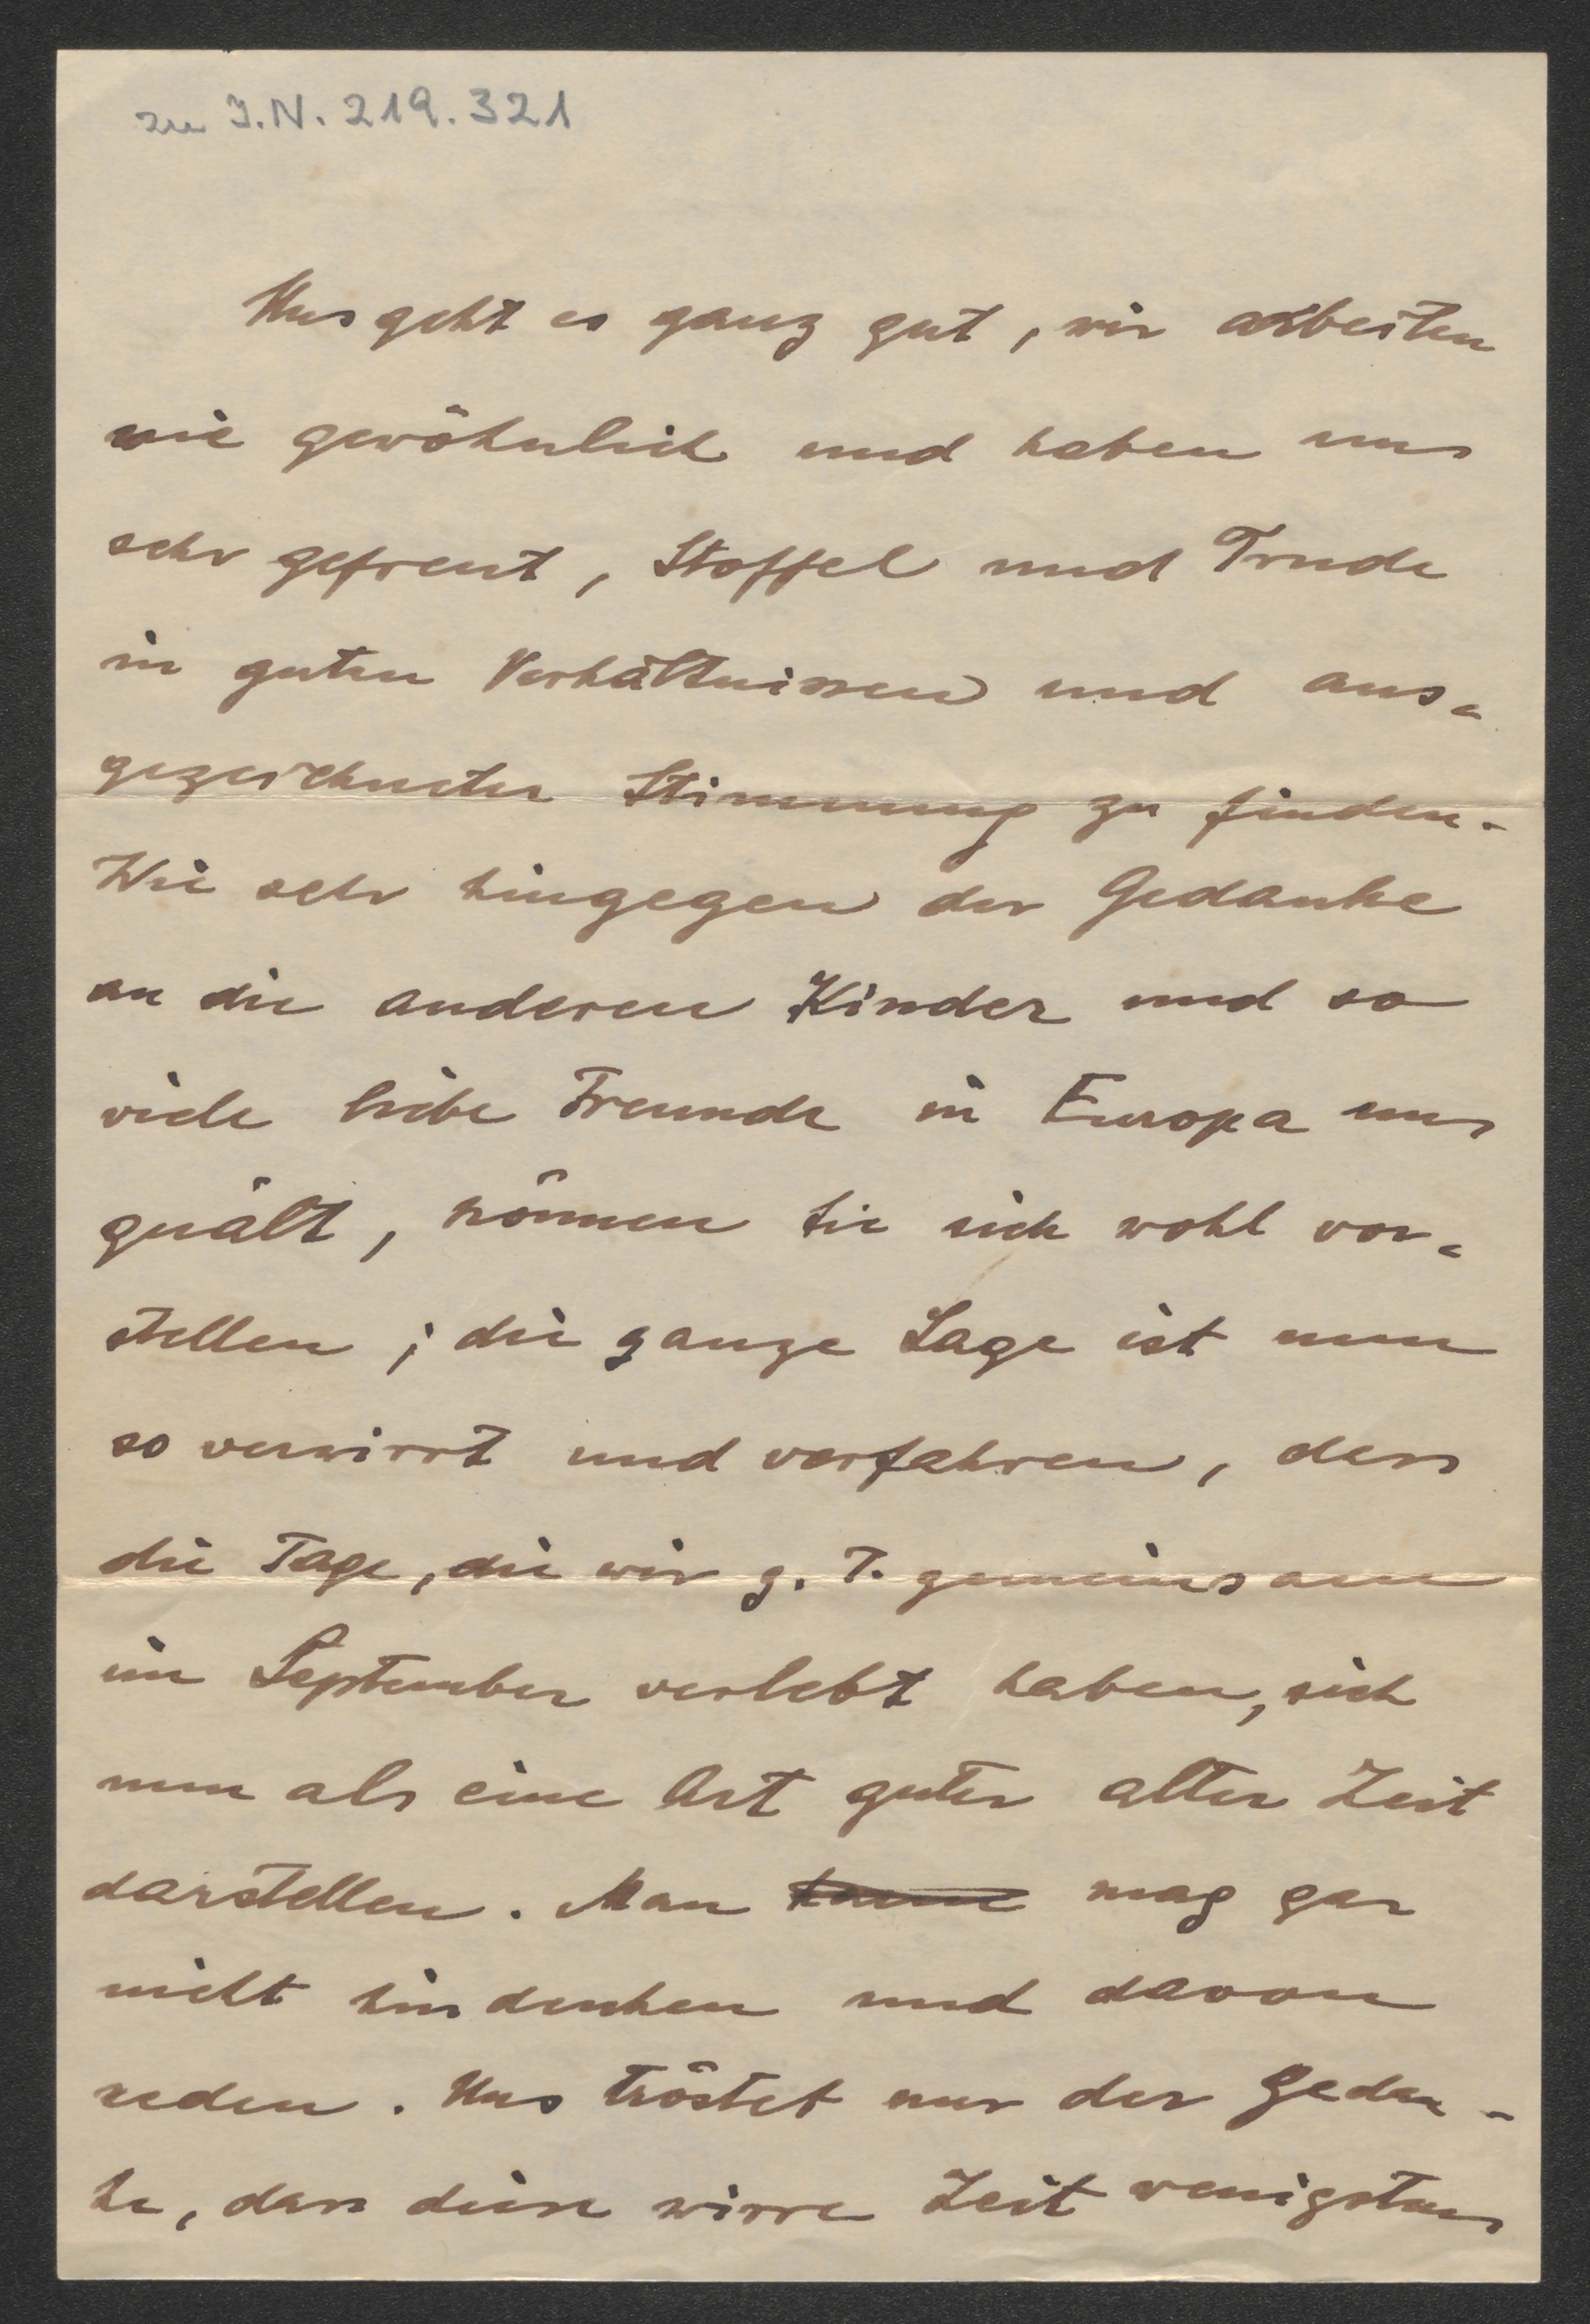 zu I.N. 219.321
Uns geht es ganz gut, wir arbeiten
wie gewöhnlich und haben uns
sehr gefreut, Stoffel und Trude
in guten Verhältnissen und aus-
gezeichneter Stimmung zu finden.
Wie sehr hingegen der Gedanke
an die anderen Kinder und so
viele liebe Freunde in Europa uns
quält, können Sie sich wohl vor-
stellen; die ganze Lage ist nun
so verwirrt und verfahren, dass
die Tage, die wir z. T. gemeinsam
im September verlebt haben, sich
nun als eine Art guter alter Zeit
darstellen. Man mag gar
nicht hindenken und davon
reden. Uns tröstet nur der Gedan-
ke, dass diese wirre Zeit wenigstens